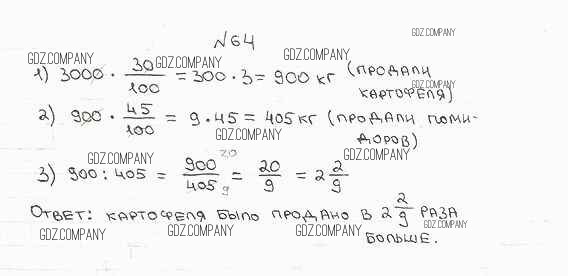 N64
GDZ.COMPANY
GDZ.COMPANY GDZ.COMPANY GDZ.COMPANY
1) 3000 · 30/100 = 300 · 3 = 900 кг (продали
GDZ.COMPANY
картофеля)
2) 900 · 45/100 = 9 · 45 = 405 кг (продали поми-
GDZ.COMPANY
доров)
GDZ.COMPANY GDZ.COMPANY
3) 900 : 405 = 900/405 20/9 = 20/9 = 2 2/9
Ответ: картофеля было продано в 2 2/9 раза
GDZ.COMPANY GDZ.COMPANY GDZ.COMPANY GDZ.COMPANY
больше.